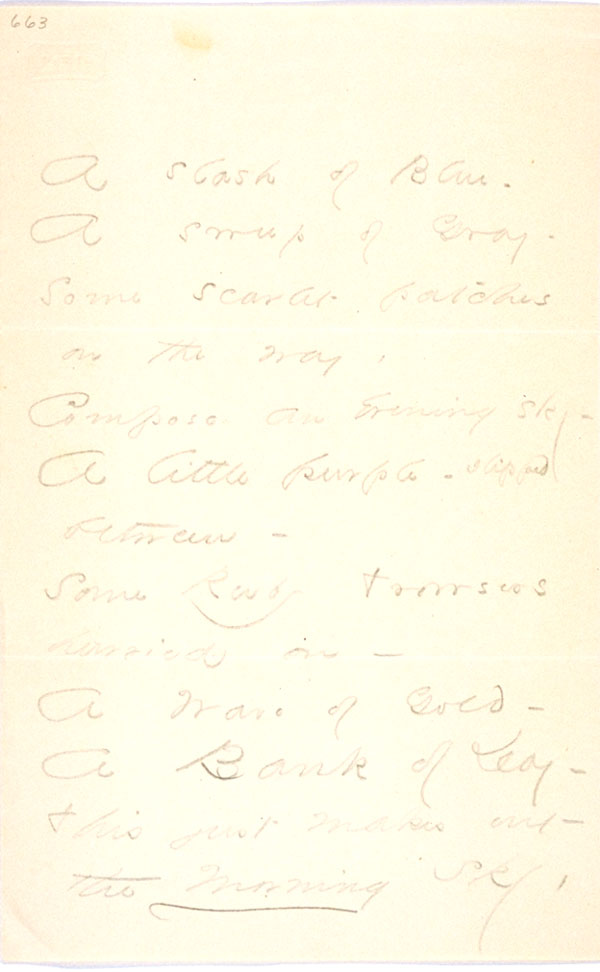 663
A slash of Blue.
A sweep of Gray -
Some scarlet patches
on the way,
Compose an Evening Sky -
A little purple - slipped
between -
Some Ruby trowsers
hurried on -
A Wave of Gold -
A Bank of Day -
this just makes out -
the Morning Sky,